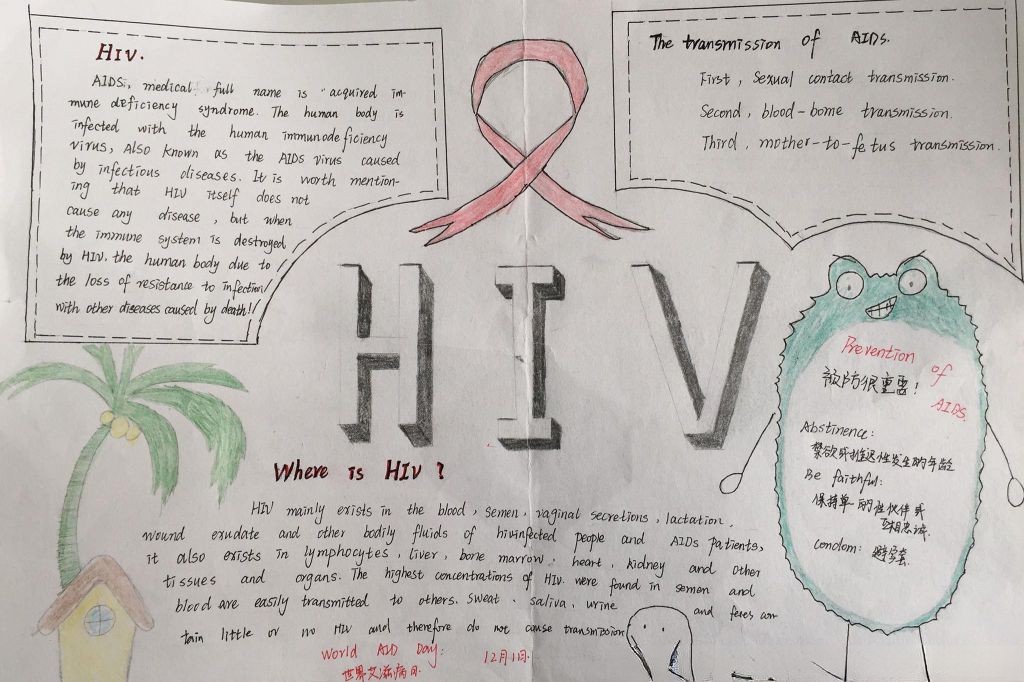 Hiv.
AIDS, medical full name is "acquired im-
mune deficiency syndrome. The human body is
infected with the human immunodeficiency
virus, Also known as the AIDs virus caused
by infectious diseases. It is worth mention-
ing that HIV itself does not
cause any disease, but when
the immune system is destroyed
by HIV. the human body due to
the loss of resistance to infection/
with other diseases caused by death!!
The transmission of AIDS.
First, Sexual contact transmission.
Second, blood-bome transmission.
Third, mother-to-fetus transmission.
HIV
Prevention of
AIDS.
预防很重要!
Abstinence:
禁欲或推迟性发生的年龄
Be faithful:
保持单一的性伙伴或
互相忠诚.
Condom: 避孕套.
Where is HIV?
HIV mainly exists in the blood, semen, vaginal secretions, lactation,
wound exudate and other bodily fluids of hivinfected people and AIDs patients,
it also exists in lymphocytes, liver, bone marrow, heart, kidney and other
tissues and organs. The highest concentrations of HIV. were found in semen and
blood are easily transmitted to others. Sweat、saliva、urine and feces con
tain little or no HIV and therefore do not cause transmission
World AID Day: 12月1日.
世界艾滋病日.